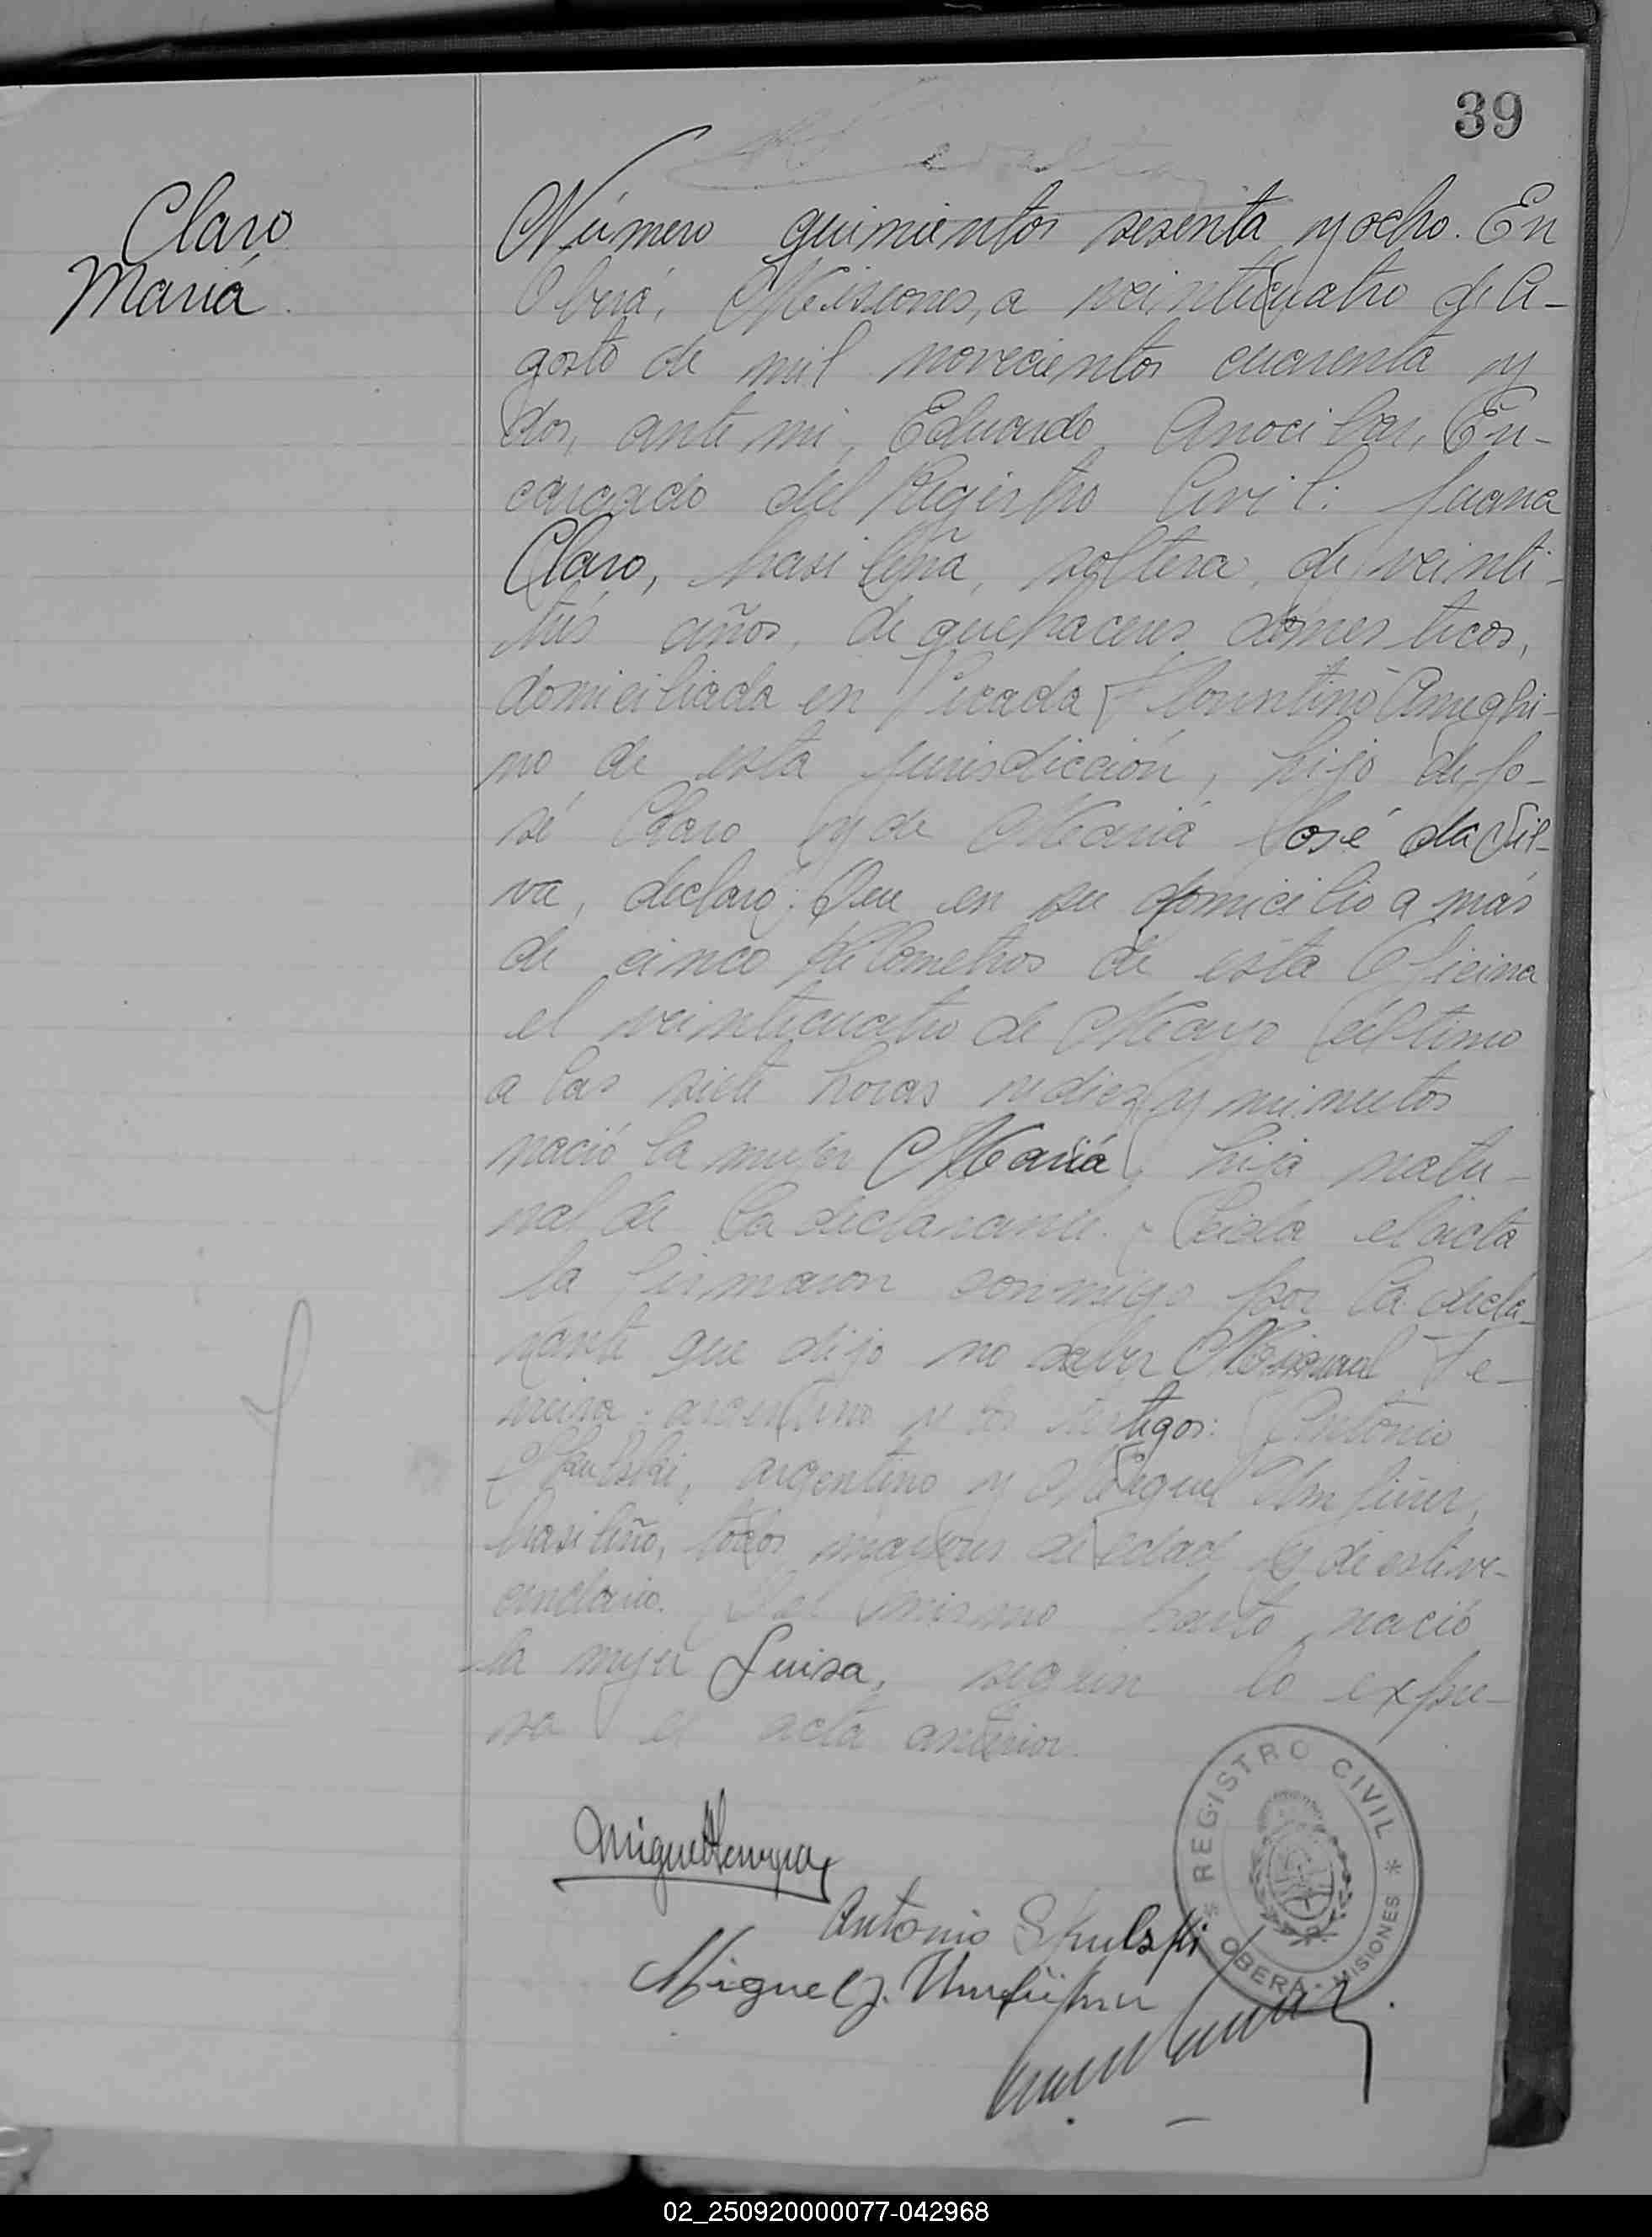 39
Claro
María
Número quinientos sesenta y ocho. En
Oberá, Misiones, a veinticuatro de A-
gosto de mil novecientos cuarenta y
dos, ante mi, Eduardo Arocibar, En-
cargado del Registro Civil: Juana
Claro, brasileña, soltera, de veinti-
trés años, de quehaceres domésticos,
domiciliada en Picada Florentino Ameghi-
no de esta jurisdicción, hija de Jo-
sé Claro y de María José da Sil-
va, declaró: Que en su domicilio a más
de cinco kilometros de esta Oficina
el veinticuatro de Mayo último
a las siete horas y diez y minutos
nació la mujer María, hija natu-
ral de la declarante. Leida el acta
la firmaron conmigo por la decla-
rante que dijo no saber
argentino y los testigos: Antonio
Skulski, argentino y Miguel
brasileño, todos mayores de edad y de este ve-
cindario. Del mismo parto nació
la mujer Luisa, según lo expre-
sa el acta anterior.
Antonio Skulski
Miguel J.
REGISTRO CIVIL
OBERÁ - MISIONES
02_250920000077-042968